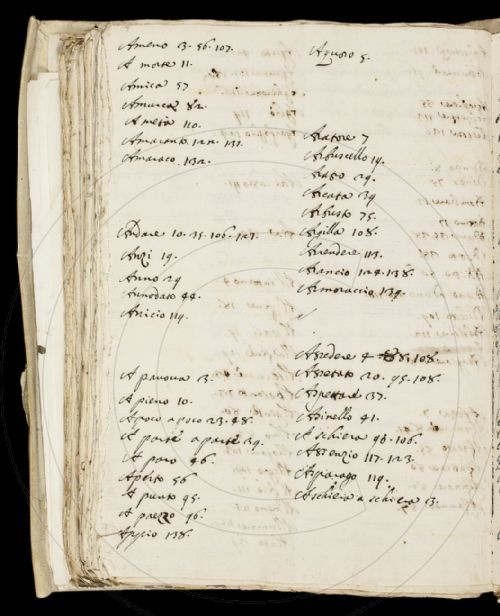 Ameno 3. 56. 107.
A morte 11.
Amica 57
Amurca 82.
A meta 110.
Amaranto 122. 131.
Amaraco. 132.
Andare 10. 35. 106. 127.
Anzi 19.
Anno 29
Annodato 44.
Anicio 119.
A panoua 3.
A pieno 10.
A poco a poco 23. 48.
A parte a parte 39.
A paro 46.
Aperto 56
A punto 95.
A prezzo 96.
Appio 138.
Aquoso 5.
Aratore 7
Arbuscello 19.
Arato 29.
Arcata 39
Arbusto 75.
Argilla 108.
Arrendere 113.
Arancio 124. 138.
Armoraccio 139.
Assedere 4 88. 108.
Assetato 20. 95. 108.
Aspettare 37.
Asinello 41.
A schiera 98. 106.
Assenzio 117. 123.
Asparago 119.
A schiera a schiera 13.